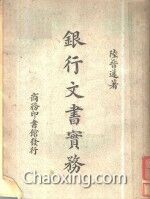 陸晉蘧著
銀行文書實務
商務印書館發行
Chaoxing.com